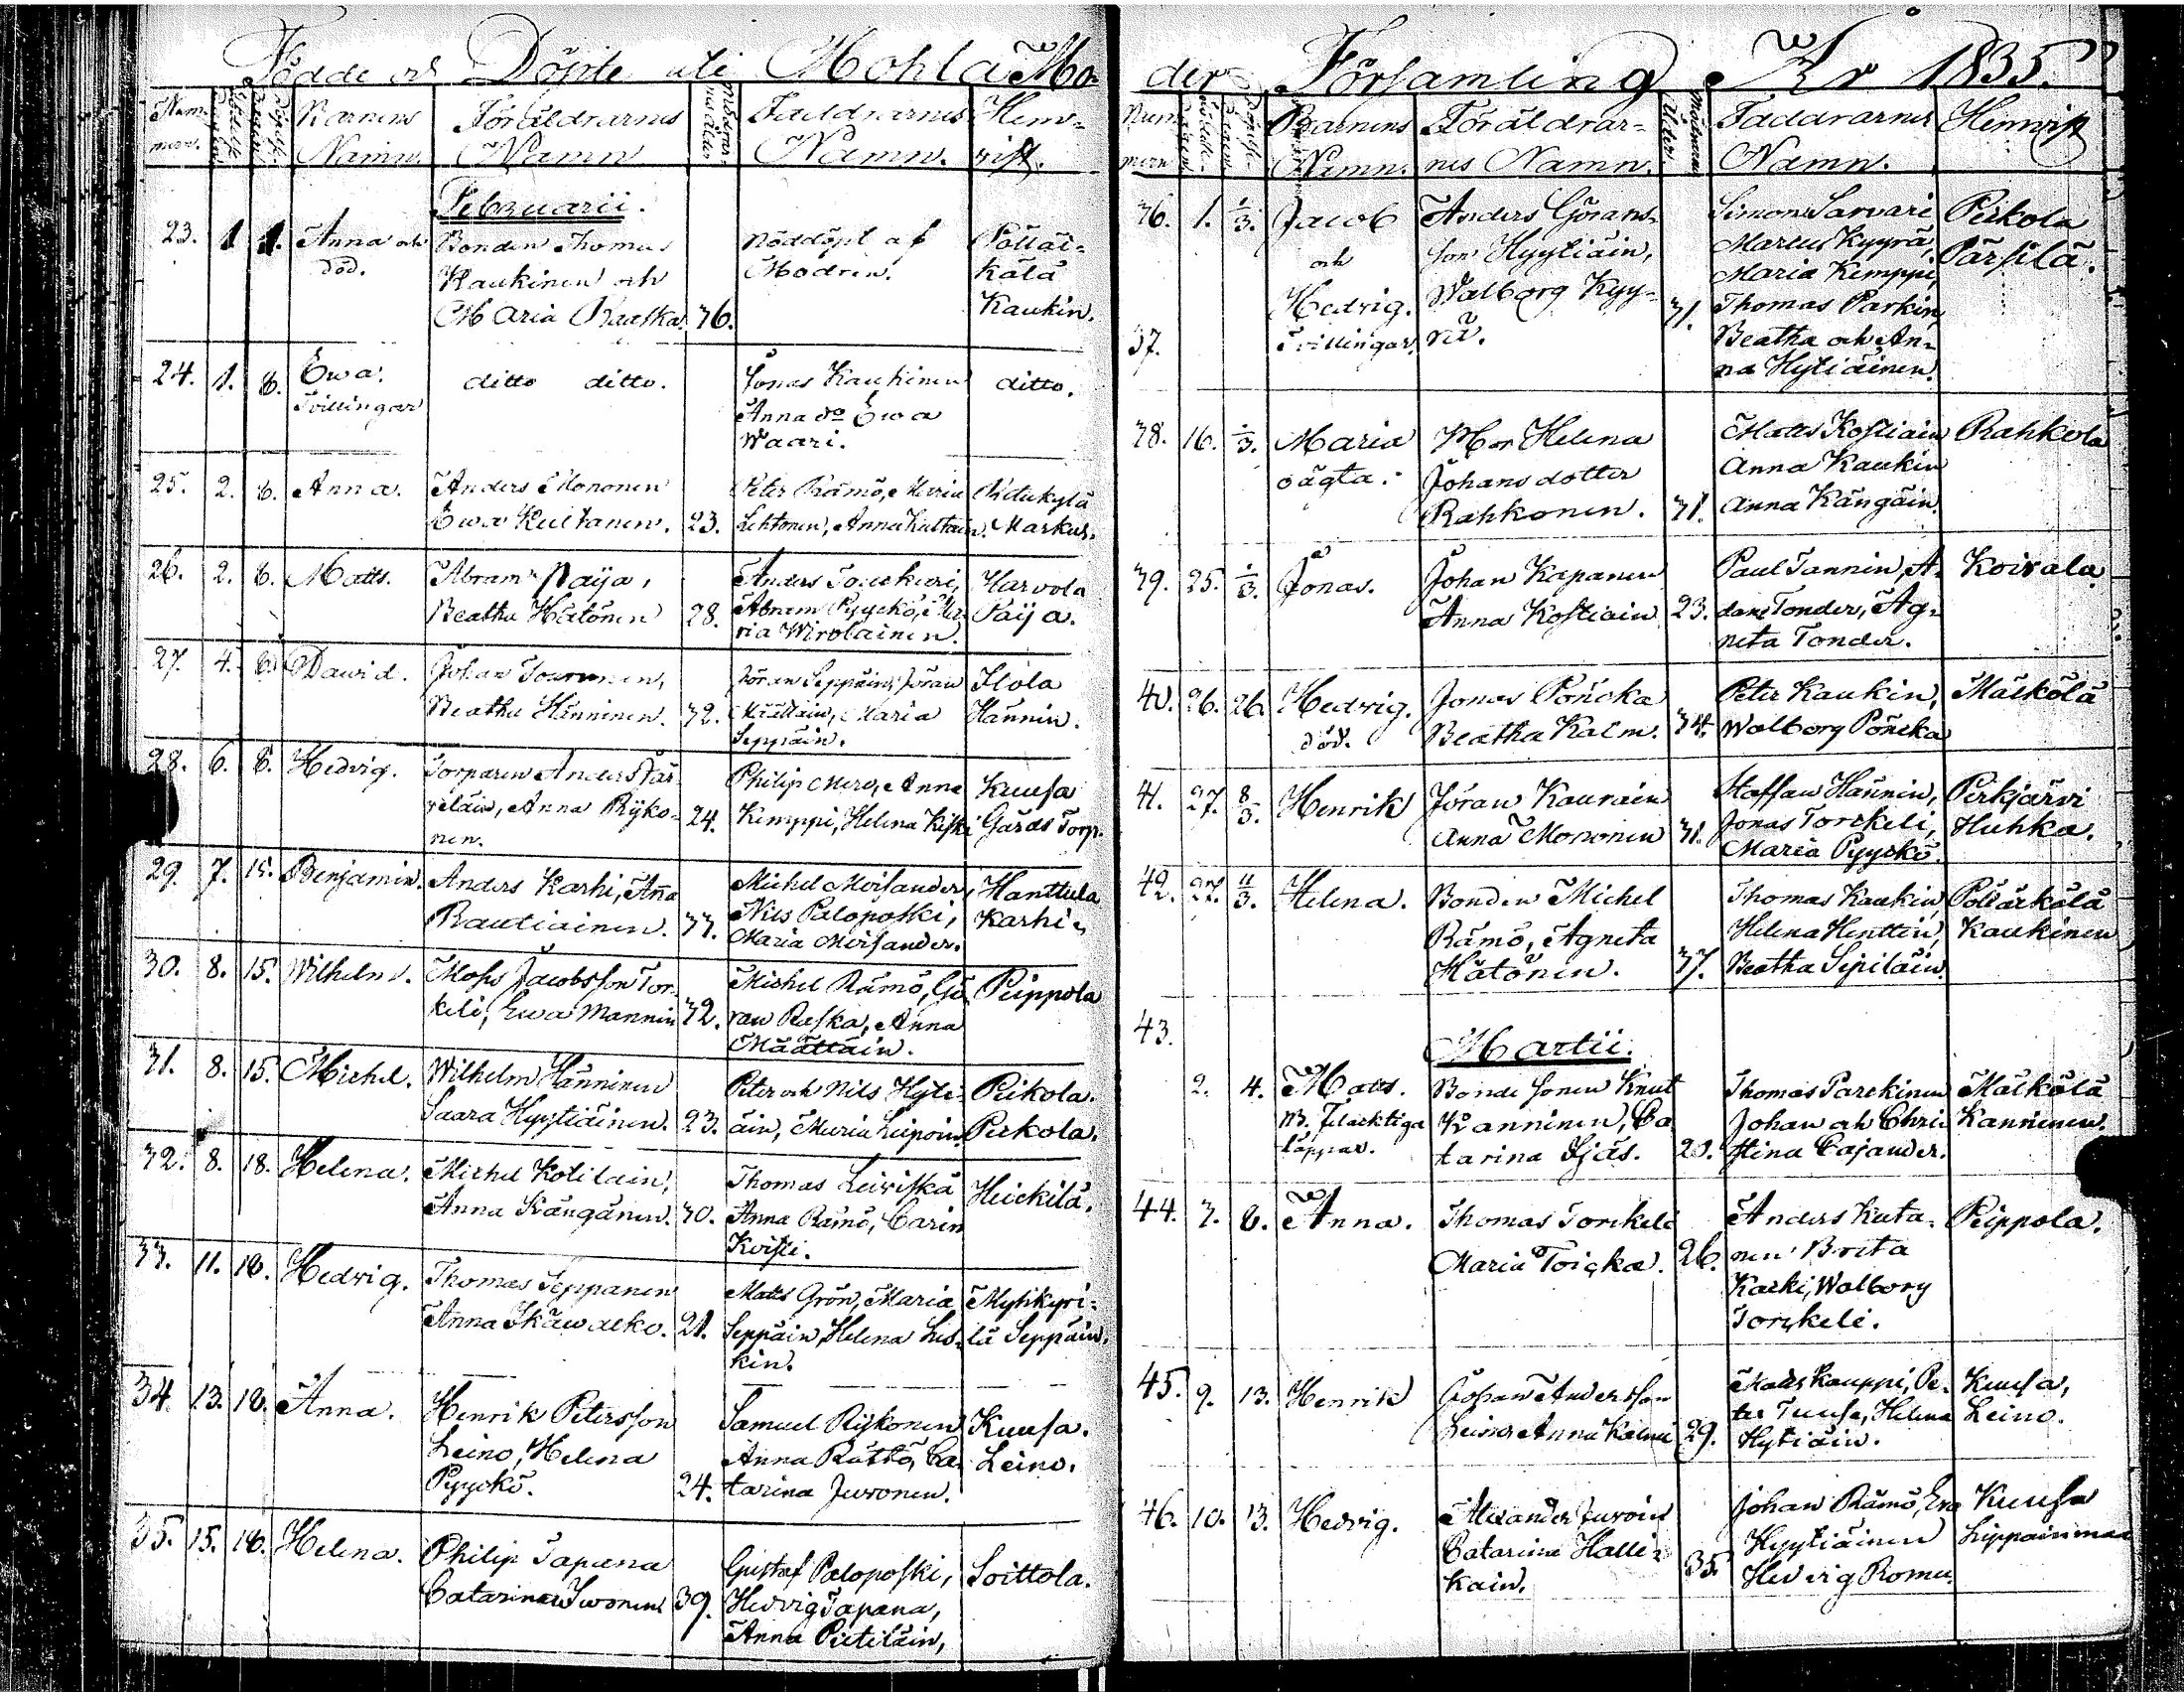 Födde och Döpte uti Mohla Mo-
Num-
mern.
Födelse
Dagen
Döpelse-
Barnens
Namn
Föräldrarnes
Namn
Mödrar-
nes ålder
Faddrarnes
Namn.
Hem-
vist.
Februarii.
23. 1. 1. Anna och
död.
Bonden Thomas
Kaukinen och
Maria Raaska. 36.
nöddöpt af
Modren.
Pöllä-
kälä
Kaukin.
24. 1. 8. Ewa.
Tvillingar
ditto ditto.
Jonas Kaukinen
Anna do Ewa
Waari.
ditto.
25. 2. 8. Anna.
Anders Mononen
Ewa Kultanen. 23.
Peter Rämö, Maria
Lehtonen, Anna Kultain.
Markus.
26. 2. 8. Matts.
Abram Paija,
Beatha Hätönen 28.
Anders Touckuri,
Abram Pyyckö, Ma-
ria Wirolainen.
Harvola
Paija.
27. 4. 8. Dawid.
Johan Tourunen,
Beatha Hänninen. 32.
Jöran Seppäin, Jöran
Määttäin, Maria
Seppäin.
Ilola
Hännin.
28. 6. 8. Hedvig.
Torparen Anders Jär-
veläin, Anna Rÿko-
nen. 24.
Philip Mero, Anna
Kemppi, Helena Kiski
Kuusa
Gårds Torp.
29. 7. 15. Benjamin.
Anders Karhi, Anna
Rautiainen. 33.
Michel Moisander,
Nils Paloposki,
Maria Moisander.
Hanttula
Karhi.
30. 8. 15. Wilhelm.
Mats Jacobsson Tor-
keli, Ewa Mannin 32.
Michel Rämö, Gö-
ran Raska, Anna
Määttäin.
Peippola
31. 8. 15. Michel.
Wilhelm Hänninen
Saara Hyytiäinen. 23.
Peter och Nils Hyti-
äin, Maria Leipoin.
Peikola.
Perkola.
32. 8. 18. Helena.
Michel Kotilain,
Anna Kängänen. 30.
Thomas Leiviskä
Anna Rämö, Carin
Kvisti.
Heickilä.
33. 11. 18. Hedvig.
Thomas Seppänen
Anna Skäwarko. 21.
Matts Grön, Maria
Seppäin, Helena Lis-
kin.
Myhkyri-
lä Seppäin.
34. 13. 18. Anna.
Henrik Petersson
Leino, Helena
Pyyckö. 24.
Samuel Rijkonen
Anna Rättö, Ca-
tarina Juvonen.
Kuusa.
Leino.
35. 15. 18. Helena.
Philip Tapana
Catarina Iwonen 39.
Gustaf Paloposki,
Hedvig Tapana,
Anna Pietiläin,
Soittola.
der Församling År 1835.
Num-
mern
Barnens
Namn.
Föräldrar-
nes Namn.
Ålder
Faddrarnes
Namn.
Hemvist
36. 1. 1/3. Jacob
och
37. Hedvig.
Tvillingar.
Anders Görans-
son Hyytiäin,
Walborg Kyy-
rä. 31.
Simon Sarvari
Martin Kyyrä,
Maria Kemppi,
Thomas Parkin,
Beatha och An-
na Hytiäinen.
Perkola
Pärsilä.
38. 16. 1/3. Maria
oägta.
Mor Helena
Johansdotter
Rahkonen. 31.
Matts Kostiain
Anna Kaukin
Anna Kängäin.
Rahkola
39. 25. 1/3. Jonas.
Johan Kapanen
Anna Kostiain 23.
Paul Tannin, A-
dam Tonder, Ag-
neta Tonder.
Koivala
40. 26. 26. Hedvig.
död.
Jonas Pöncka
Beatha Kalm. 34.
Peter Kaukin,
Walborg Pöncka
Mälkölä
41. 27. 8/3. Henrik
Jöran Kaurain
Anna Mononen 31.
Staffan Hännin,
Jonas Torckeli,
Maria Pyyckö.
Perkjärvi
Huhka.
42. 27. 11/3. Helena.
Bonden Michel
Rämö, Agneta
Hätönen. 37.
Thomas Kaukin,
Helena Henttin,
Beatha Sipiläin.
Pölläkälä
Kaukinen
43.
Martii.
2. 4. Matts.
Bonde sonen Knut
Kanninen, Ca-
tarina Sjäs. 20.
Thomas Parckinen
Johan och Chri-
stina Cajander.
Mälkölä
Kanninen.
44. 7. 8. Anna.
Thomas Torckeli
Maria Toicka. 26.
Anders Kuta-
nen Brita
Karki, Walborg
Torckeli.
Peippola.
45. 9. 13. Henrik
Johan Andersson
Leino Anna Kalmi 29.
Matts Kauppi, Pe-
ter Tuusa, Helena
Hytiäin.
Kuusa,
Leino.
46. 10. 13. Hedvig.
Alexander Juvoin
Catarina Halli-
kain. 35.
Johan Rämö, Eva
Hyytiäinen
Hedvig Romu.
Kuusa